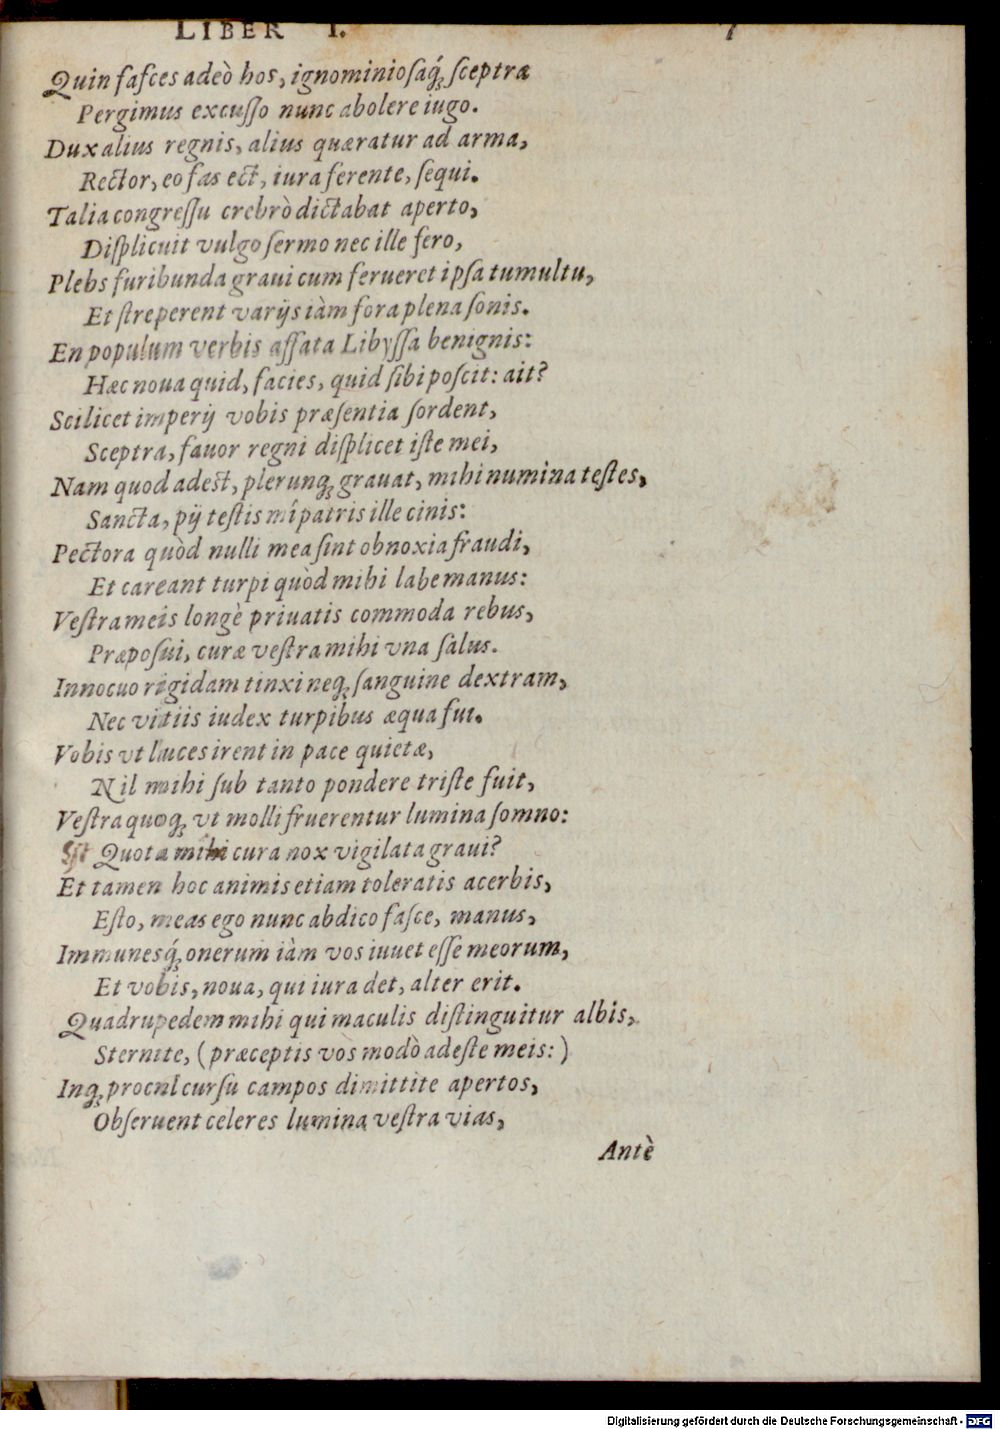 LIBER I. 7
Quin fasces adeò hos, ignominiosaq́; sceptra
Pergimus excusso nunc abolere iugo.
Dux alius regnis, alius quæratur ad arma,
Rector, eo fas ect, iura ferente, sequi.
Talia congressu crebrò dictabat aperto,
Displicuit vulgo sermo nec ille fero,
Plebs furibunda graui cum ferueret ipsa tumultu,
Et streperent varijs iàm fora plena sonis.
En populum verbis affata Libyssa benignis:
Hæc noua quid, facies, quid sibi poscit: ait?
Scilicet imperij vobis præsentia sordent,
Sceptra, fauor regni displicet iste mei,
Nam quod adest, plerunq; grauat, mihi numina testes,
Sancta, pij testis mî patris ille cinis:
Pectora quòd nulli mea sint obnoxia fraudi,
Et careant turpi quòd mihi labe manus:
Vestra meis longè priuatis commoda rebus,
Præposui, curæ vestra mihi vna salus.
Innocuo rigidam tinxi neq; sanguine dextram,
Nec vitiis iudex turpibus æqua fui.
Vobis vt luces irent in pace quietæ,
Nil mihi sub tanto pondere triste fuit,
Vestra quoq; vt molli fruerentur lumina somno:
Quota mihi cura nox vigilata graui?
Et tamen hoc animis etiam toleratis acerbis,
Esto, meas ego nunc abdico fasce, manus,
Immunesq́; onerum iàm vos iuuet esse meorum,
Et vobis, noua, qui iura det, alter erit.
Quadrupedem mihi qui maculis distinguitur albis,
Sternite, (præceptis vos modò adeste meis:)
Inq; procul cursu campos dimittite apertos,
Obseruent celeres lumina vestra vias,
Antè
Digitalisierung gefördert durch die Deutsche Forschungsgemeinschaft - DFG